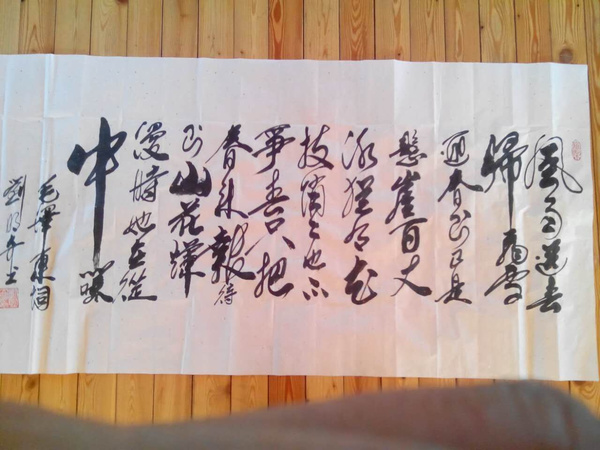 風雨送春
歸飛雪
迎春到已是
懸崖百丈
冰猶有花
枝俏〻也不
爭春只把
春來報待
到山花爛
漫時她在從
中笑
毛澤東詞
劉